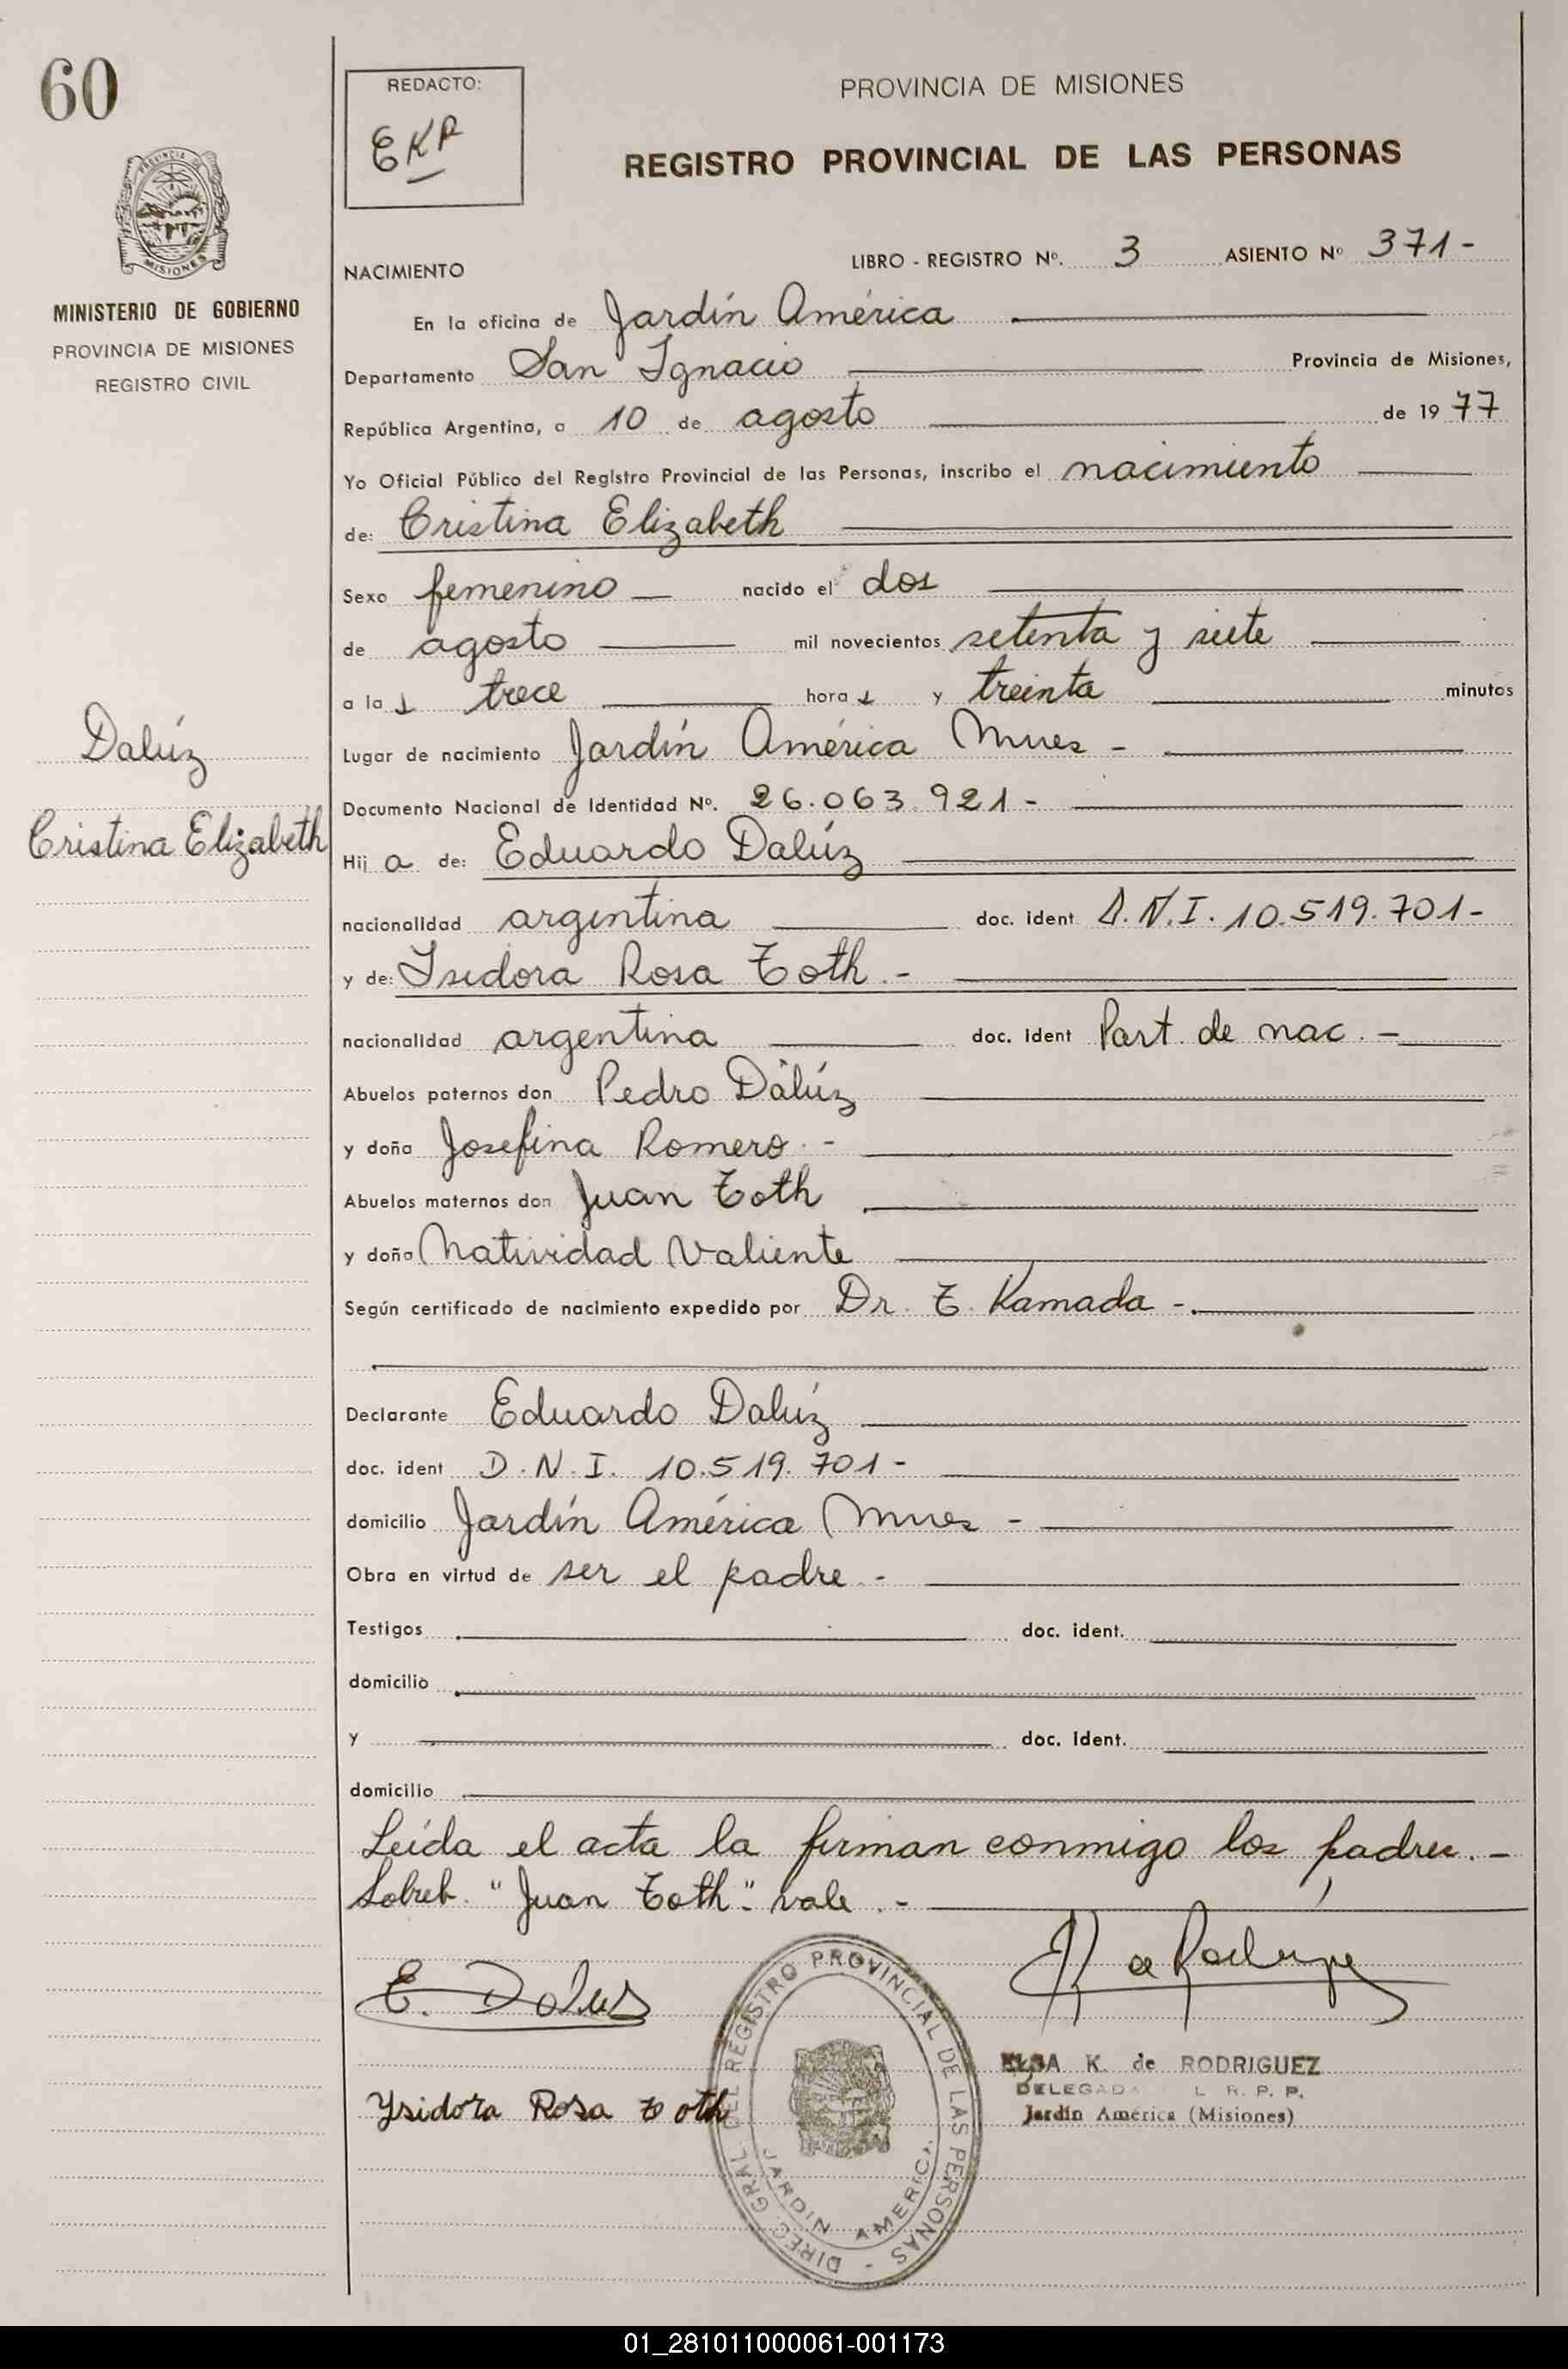 60
REDACTO:
EKR
PROVINCIA DE MISIONES
REGISTRO PROVINCIAL DE LAS PERSONAS
PROVINCIA DE
MISIONES
MINISTERIO DE GOBIERNO
PROVINCIA DE MISIONES
REGISTRO CIVIL
NACIMIENTO
LIBRO - REGISTRO Nº. 3 ASIENTO Nº 371-
En la oficina de Jardín América
Departamento San Ignacio Provincia de Misiones,
República Argentina, a 10 de agosto de 1977
Yo Oficial Público del Registro Provincial de las Personas, inscribo el nacimiento
de: Cristina Elizabeth
Sexo femenino nacido el dos
de agosto mil novecientos setenta y siete
a la s trece hora s y treinta minutos
Lugar de nacimiento Jardín América Mnes -
Dalúz
Cristina Elizabeth
Documento Nacional de Identidad Nº. 26.063.921-
Hij a de: Eduardo Dalúz
nacionalidad argentina doc. ident D.N.I. 10.519.701-
y de: Isidora Rosa Toth.-
nacionalidad argentina doc. ident Part. de nac. -
Abuelos paternos don Pedro Dalúz
y doña Josefina Romero. -
Abuelos maternos don Juan Toth
y doña Natividad Valiente
Según certificado de nacimiento expedido por Dr. T. Kamada -.
Declarante Eduardo Dalúz
doc. ident D.N.I. 10.519.701-
domicilio Jardín América Mnes -
Obra en virtud de ser el padre.-
Testigos doc. ident.
domicilio
y doc. Ident.
domicilio
Leída el acta la firman conmigo los padres. -
Sobreb. "Juan Toth": vale. -
E. Daluz
de Rodríguez
ELSA K. de RODRIGUEZ
DELEGADA L R. P. P.
Jardín América (Misiones)
Ysidora Rosa Toth
DIREC. GRAL. DEL REGISTRO PROVINCIAL DE LAS PERSONAS -
JARDIN AMERICA
01_281011000061-001173